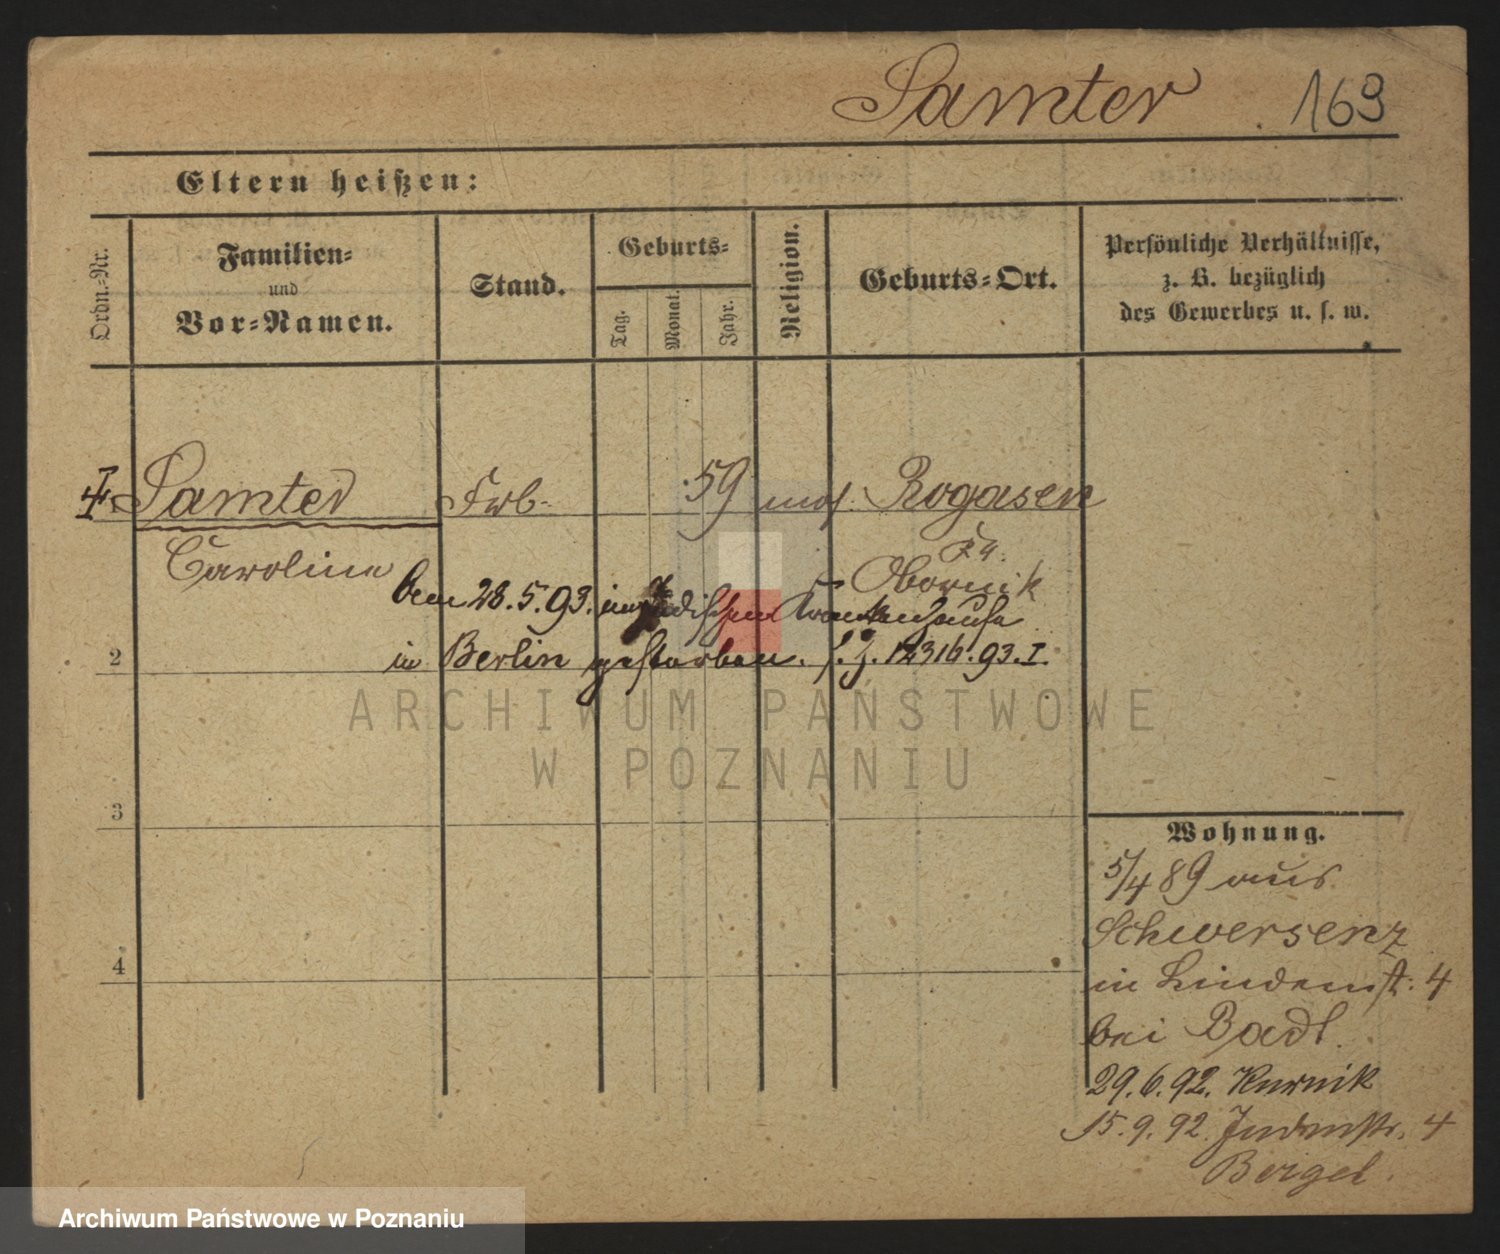 Samter 163
Eltern heißen:
Ordn.-Nr.
Familien-
und
Vor-Namen.
Stand.
Geburts-
Tag.
Monat.
Jahr.
Religion.
Geburts-Ort.
Persönliche Verhältnisse,
z. B. bezüglich
des Gewerbes u. s. w.
Samter 59 mos. Rogasen
Caroline Obornik
28.5.93. im jüdischen Krankenhause
in Berlin gestorben. 12316.93.I.
2
3
4
Wohnung.
5/4 89 aus
Schwersenz
in Lindenst. 4
bei Badt.
29.6.92. Kurnik
15.9.92. Judenstr. 4
Bergel.
ARCHIWUM PAŃSTWOWE
W POZNANIU
Archiwum Państwowe w Poznaniu